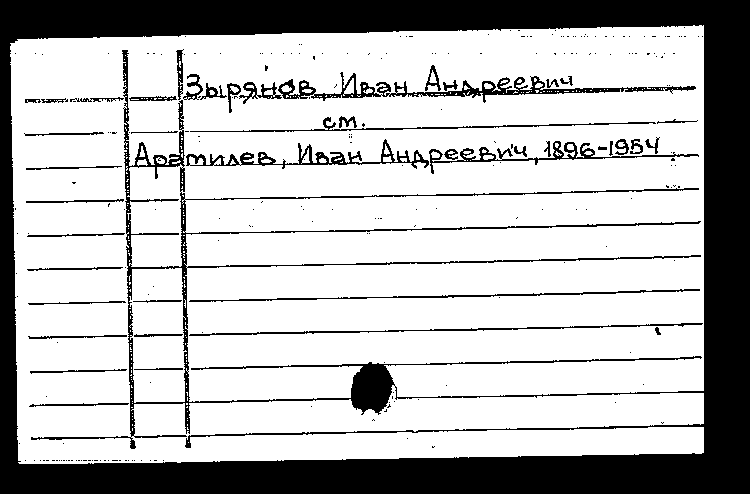 Зырянов, Иван Андреевич
см.
Арамилев, Иван Андреевич, 1896-1954